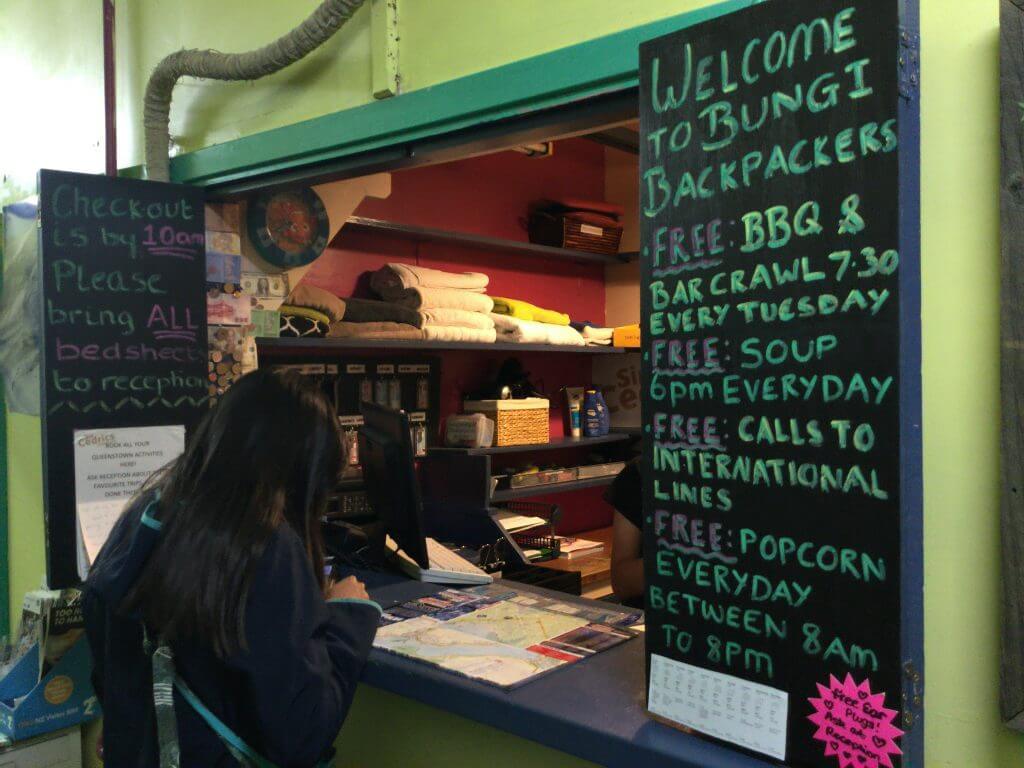 Checkout
is by 10am
Please
bring ALL
bedsheets
to reception
Cedrics
BOOK ALL YOUR
QUEENSTOWN ACTIVITIES
HERE!
ASK RECEPTION ABOUT
FAVOURITE TRIPS
DONE
WELCOME
TO BUNGI
BACKPACKERS
• FREE: BBQ &
BAR CRAWL 7.30
EVERY TUESDAY
• FREE: SOUP
6pm EVERYDAY
• FREE: CALLS TO
INTERNATIONAL
LINES
• FREE: POPCORN
EVERYDAY
BETWEEN 8AM
TO 8PM
free Ear
Plugs!
Ask at
Reception